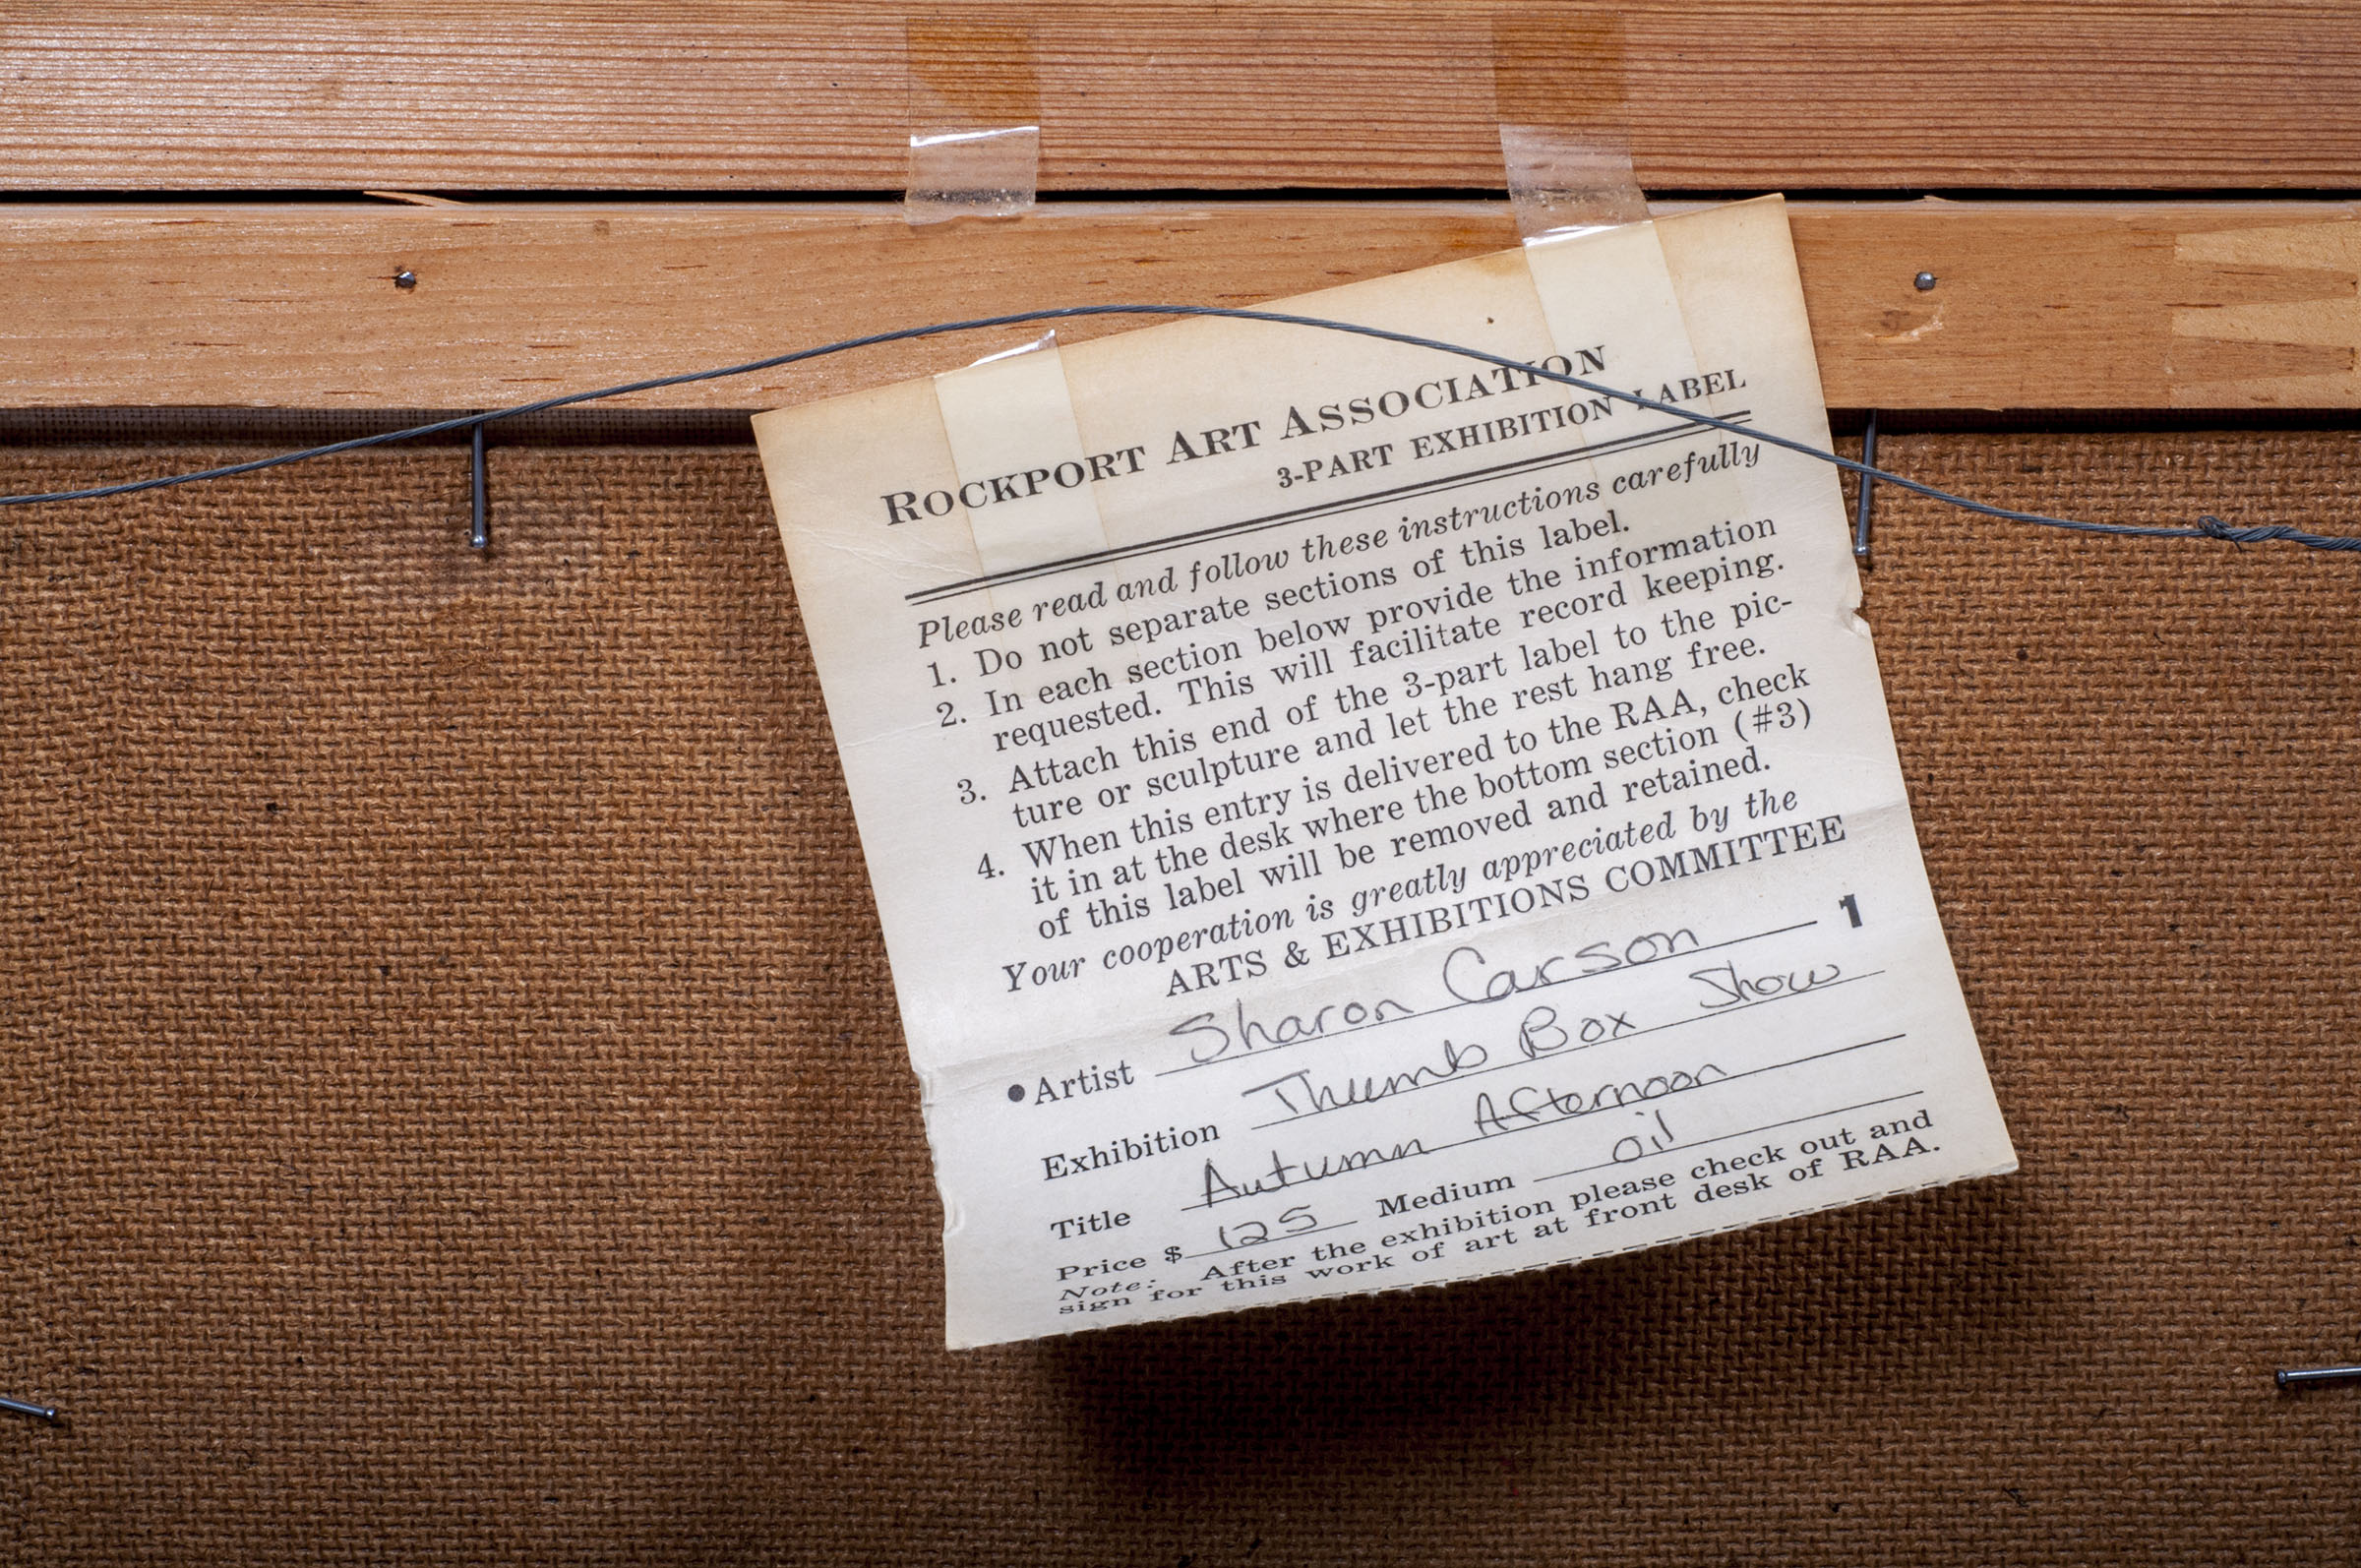 ROCKPORT ART ASSOCIATION
3-PART EXHIBITION LABEL
Please read and follow these instructions carefully
1. Do not separate sections of this label.
2. In each section below provide the information
requested. This will facilitate record keeping.
3. Attach this end of the 3-part label to the pic-
ture or sculpture and let the rest hang free.
4. When this entry is delivered to the RAA, check
it in at the desk where the bottom section (#3)
of this label will be removed and retained.
Your cooperation is greatly appreciated by the
ARTS & EXHIBITIONS COMMITTEE
•Artist Sharon Carson 1
Exhibition Thumb Box Show
Title Autumn Afternoon
Price $ 125 Medium oil
Note: After the exhibition please check out and
sign for this work of art at front desk of RAA.